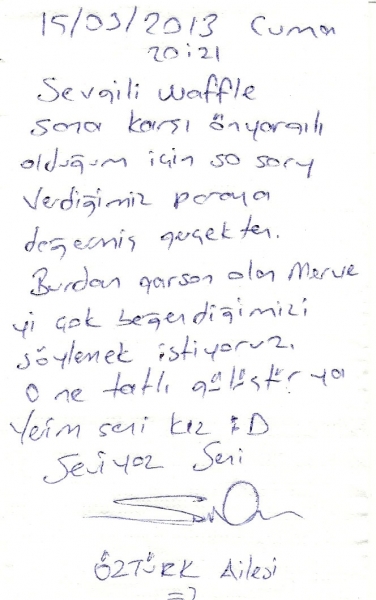 15/03/2013 Cuma
20:21
Sevgili waffle
sana karşı önyargılı
olduğum için so sory
Verdiğimiz paraya
değermiş gerçekten.
Burdan garson olan Merve
yi çok beğendiğimizi
söylemek istiyoruz.
O ne tatlı gülüştür ya
Yerim seni kız :D
Seviyoz Seni
ÖZTÜRK Ailesi
=)